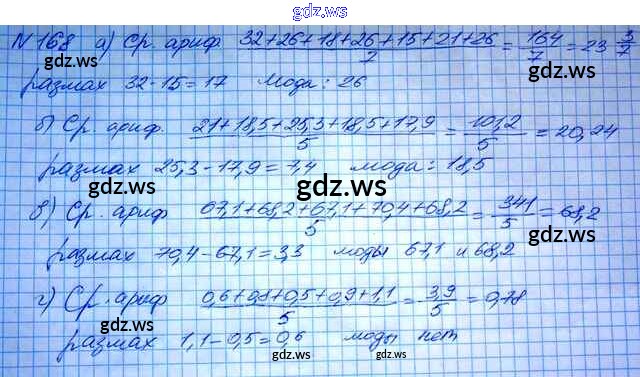 gdz.ws
№168 а) Ср. ариф. 32+26+18+26+15+21+26/7 = 164/7 = 23 3/7
размах 32-15=17 Мода: 26
б) Ср. ариф. 21+18,5+25,3+18,5+17,9/5 = 101,2/5 = 20,24
размах 25,3-17,9=7,4 мода: 18,5
gdz.ws
в) Ср. ариф 67,1+68,2+67,1+70,4+68,2/5 = 341/5 = 68,2
gdz.ws
размах 70,4-67,1=3,3 моды 67,1 и 68,2
г) Ср. ариф 0,6+0,8+0,5+0,9+1,1/5 = 3,9/5 = 0,78
размах 1,1-0,5=0,6 моды нет
gdz.ws